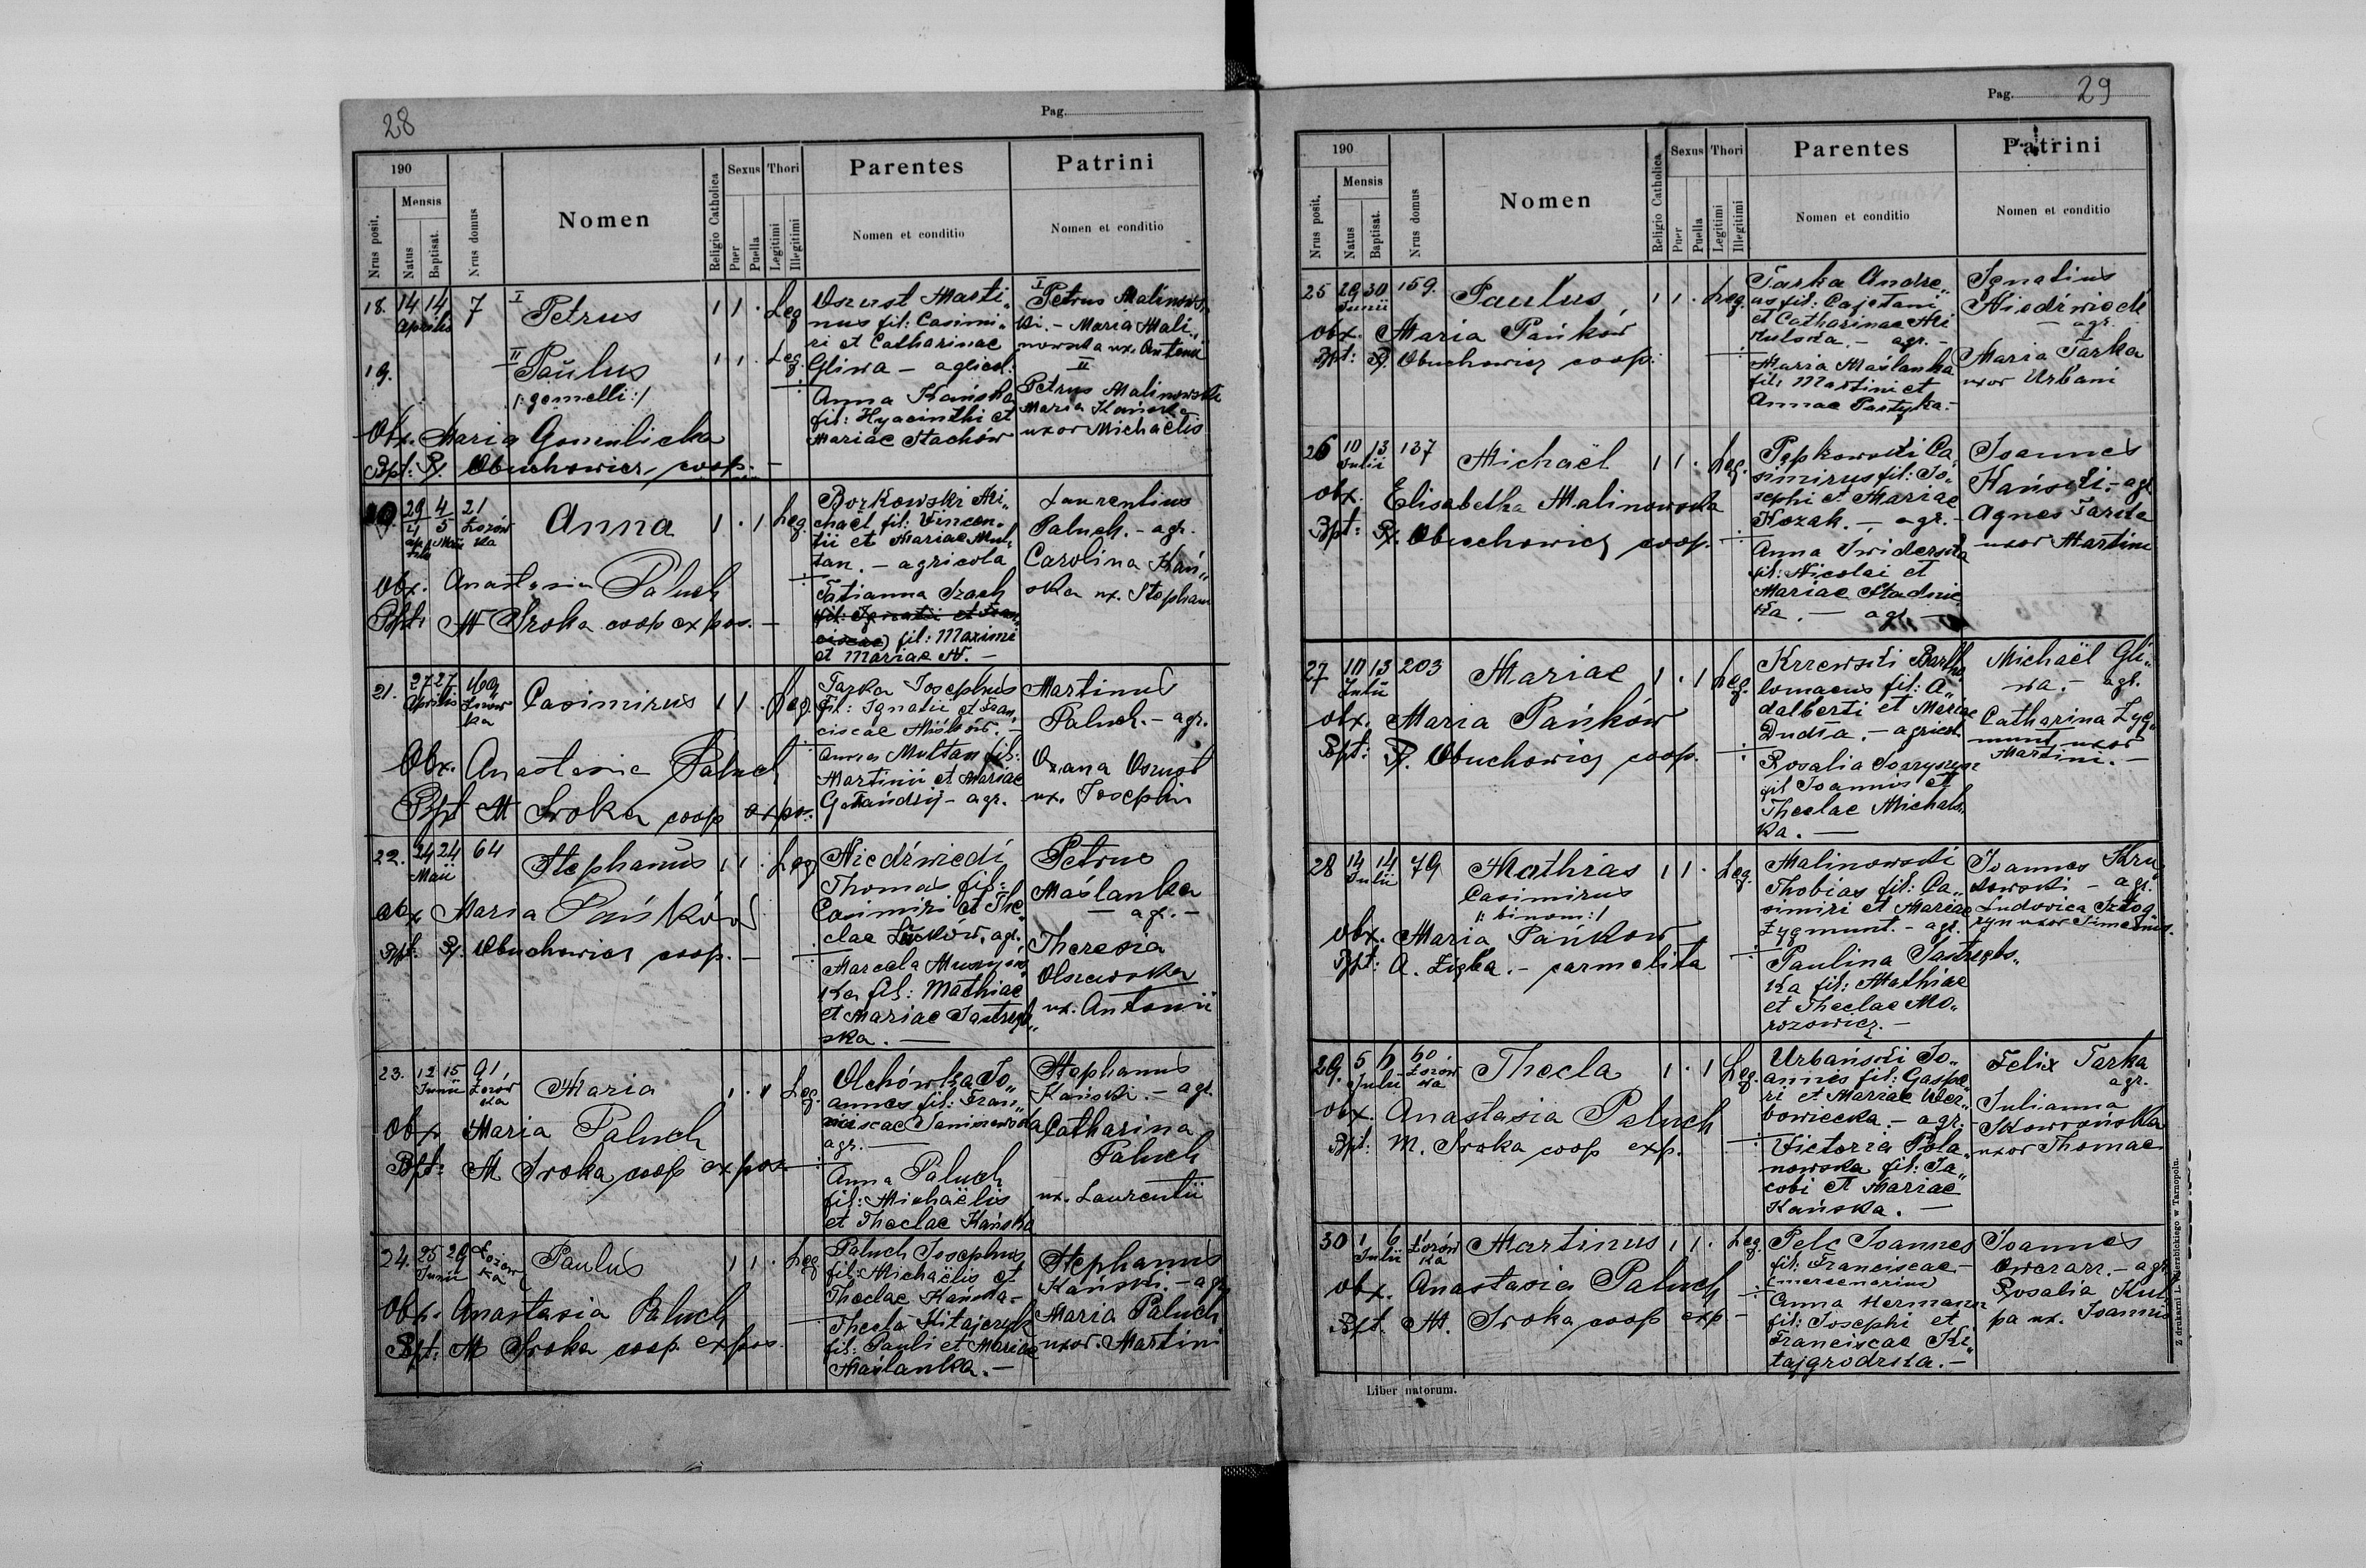 28
Pag.
190
Mensis
Nrus posit.
Natus
Baptisat.
Nrus domus
Nomen
Religio Catholica
Sexus
Puer
Puella
Thori
Legitimi
Illegitimi
Parentes
Nomen et conditio
Patrini
Nomen et conditio
18. 14 14 7 I Petrus 1 1 . Leg
Aprilis
Oszust Marti„
nus fil: Casimi„
ri et Catharinae
Gliwa — agricol:
Anna Kańska
fil: Hyacinthi et
Mariae Stachów
I
Petrus Malinows„
ki. — Maria Mali„
nowska ux. Antonii
II
Petrus Malinowski
Maria Kańska
uxor Michaëlis
19. II Paulus 1 1 . Leg.
/: gemelli :/
Obx. Maria Gomulicka
Bpt: X. Obuchowicz, coop. —
29 4 21 Anna 1 . 1 Leg.
4 5 Łozów
Apr Maii ka
ilis
Borkowski Mi„
chaël fil: Vincen„
tii et Mariae Mul„
tan. — agricola
Tatianna Szach
fil: Ignatii et Fran„
ciscae) fil: Maximi
et Mariae N. —
Laurentius
Paluch. — agr.
Carolina Kań„
ska ux. Stephani
Obx. Anastasia Paluch
Bpt: M Sroka coop expos. —
21. 27 27 Casimirus 1 1 . Leg.
Aprilis Łozów
ka
Tarka Josephus
fil: Ignatii et Fran„
ciscae Miśków. —
Anna Multan fil:
Martinii et Mariae
agr.
Martinus
Paluch. — agr.
Oszust
ux. Josephi
Obx. Anastasia Paluch
Bpt M Sroka coop expos.
22. 24 24 64 Stephanus 1 1 . Leg
Maii
Niedźwiedź
Thomas fil:
Casimiri et The„
clae Łuków, agr.
Marcela
ka fil: Mathiae
et Mariae Jastrzęb„
ska. —
Petrus
Maślanka
— agr. —
Theresia
Olszewska
ux. Antonii
Obx Maria Pańków
Bpt. X. Obuchowicz coop. —
23. 12 15 91 Maria 1 . 1 Leg.
Junii Łozów
ka
Olchówka Jo„
annes fil: Fran„
ciscae
agr. —
Anna Paluch
fil: Michaëlis
et Theclae Kańska
Stephanus
Kański. — agr.
Catharina
Paluch
ux. Laurentii
Obx Maria Paluch
Bpt: M Sroka coop expos
24. 25 29 Łozów Paulus 1 1 . Leg
Junii ka
Paluch Josephus
fil: Michaëlis et
Theclae Kańska —
Thecla Kitajczuk
fil: Pauli et Mariae
Maślanka. —
Stephanus
Kański. — agr
Maria Paluch
uxor. Martini
Obx. Anastasia Paluch
Bpt: M Sroka coop expos.
Pag. 29
190
Mensis
Nrus posit.
Natus
Baptisat.
Nrus domus
Nomen
Religio Catholica
Sexus
Puer
Puella
Thori
Legitimi
Illegitimi
Parentes
Nomen et conditio
Patrini
Nomen et conditio
25 29 30 159. Paulus 1 1 . Leg.
Junii
Tarka Andre„
as fil: Cajetani
et Catharinae Mi
kulska. — agr. —
Maria Maślanka
fil: Martini et
Annae Partyka. —
Ignatius
Niedźwiedź
— agr.
Maria Tarka
uxor Urbani
obx. Maria Pańków
Bpt: X. Obuchowicz coop:
26 10 13 137 Michaël 1 1 . Leg.
Julii
Ca„
simirus fil: Jo„
sephi et Mariae
Kozak. — agr. —
Anna Świderska
fil: Nicolai et
Mariae Stadnic
ka. — agr. —
Joannes
Kański. — agr
Agnes Tarka
uxor Martini
obx. Elisabetha Malinowska
Bpt: X. Obuchowicz coop. —
27 10 13 203 Mariae 1 . 1 Leg.
Julii
Krzewski Bartho
lomaeus fil: A„
dalberti et Mariae
Dudra. — agricol.
Rosalia
fil Joannis et
Theclae Michals„
ka. —
Michaël Gli„
wa. — agr.
Catharina Zyg„
munt, uxor
Martini. —
obx. Maria Pańków
Bpt: X. Obuchowicz coop. —
28 14 14 79 Mathias 1 1 . Leg.
Julii Casimirus
/: binom :/
Malinowski
Thobias fil: Ca„
simiri et Mariae
Zygmunt. — agr.
Paulina Jastrzębs„
ka fil: Mathiae
et Theclae Mo„
rozowicz. —
Joannes Kru
kowski — agr.
Ludovica
uxor Simeonis.
obx. Maria Pańkow
Bpt: A. Zięba. — carmelita
29. 5 6 60 Thecla 1 . 1 Leg.
Julii Łozów
ka
Urbański Jo„
annes fil: Gaspa„
ri et Mariae Wer„
bowiecka. — agr.
Victoria Pola„
nowska fil: Ja„
cobi et Mariae
Kańska. —
Felix Tarka
agr.
Julianna
Skowrońska
uxor Thomae
obx. Anastasia Paluch
Bpt: M. Sroka coop exp.
30 1 6 Łozów Martinus 1 1 . Leg.
Julii ka
Pelc Joannes
fil: Franciscae —
(mercenarius)
Anna Hermann
fil: Josephi et
Franciscae Ki„
tajgrodzka. —
Joannes
Owczarz. — agr
Rosalia Kul
pa ux. Joannis
obx. Anastasia Paluch
Bpt. M. Sroka coop exp —
Liber natorum.
Z drukarni L. Wierzbickiego w Tarnopolu.